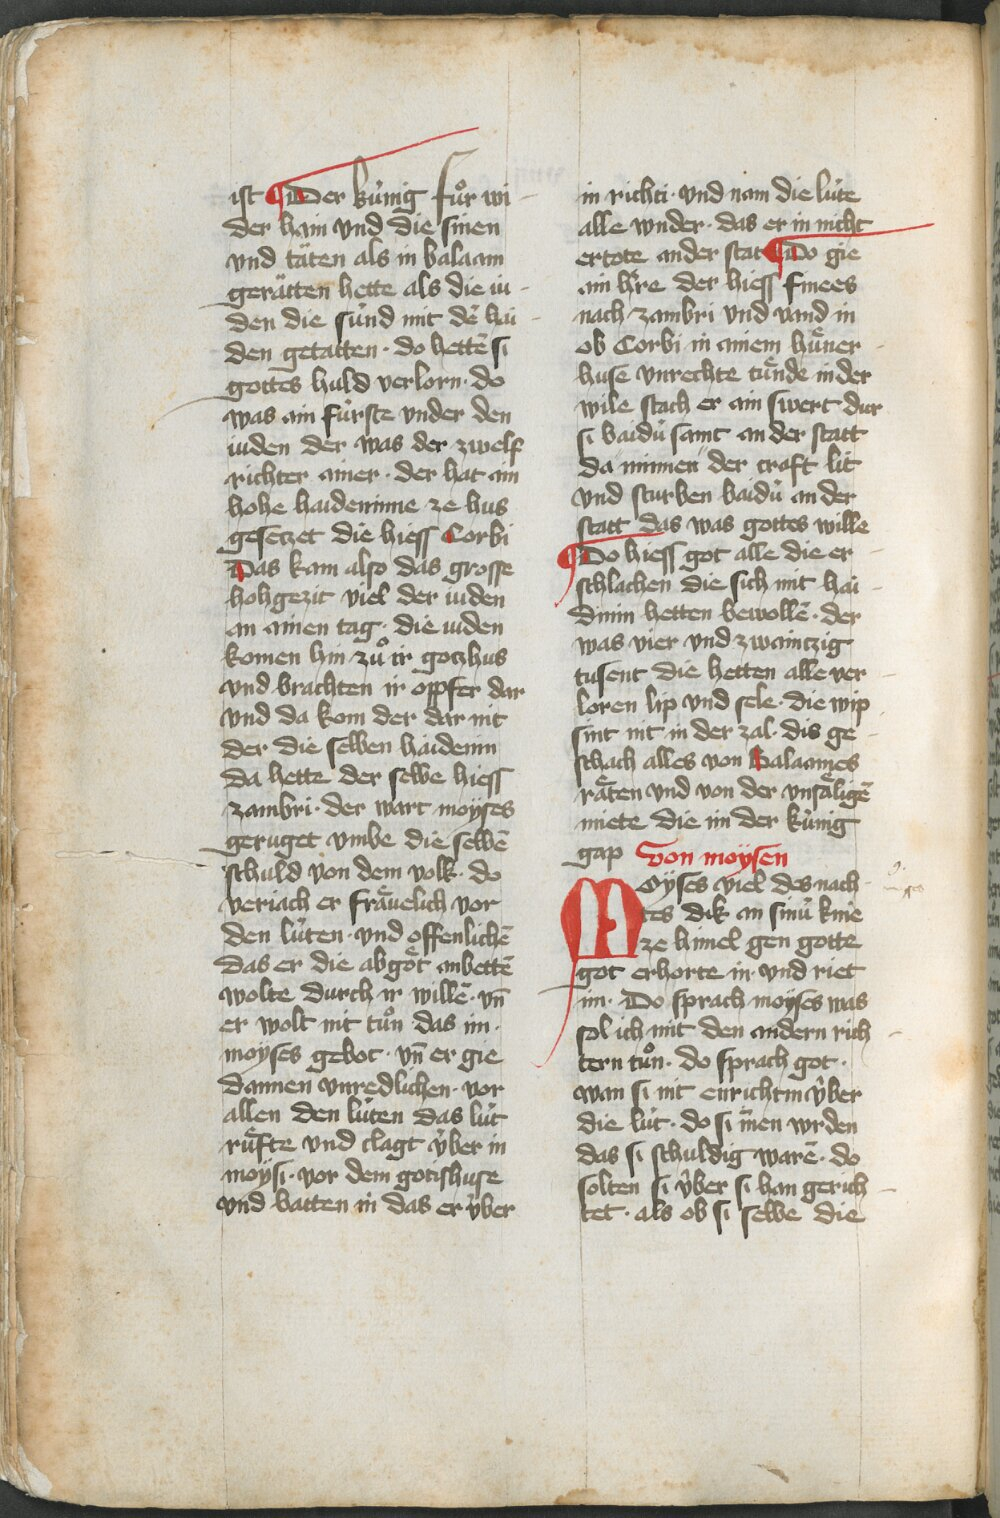 ist ¶ Der kúnig fuͦr wi-
der hain vnd die sinen
vnd täten als in balaam
gerätten hette als die iu-
den die súnd mit dē hai-
den getatten · do hettē si
gottes huld verlorn · do
was ain fúrste vnder den
iuden der was der zwelf
richter ainer · der hat ain
hohe haideninne ze hus
gesetzet die hiess Corbi
Das kam also das grosse
hohgezit viel der iuden
an ainen tag · die iuden
komen hin zuͦ ir gotzhus
vnd brachten ir oppfer dar
vnd da kom der dar nit
der die selben haidenin
da hette der selbe hiess
zambri · der wart moÿses
geruget vmbe die selbē
schuld von dem volk · do
veriach er frävelich vor
den lúten · vnd offenlichē
das er die abgöt anbettē
wolte durch ir willē · vn̄
er wolt nit tuͦn das im ·
moyses gebot · vn̄ er gie
dannen vnredlichen · vor
allen den lúten das lút
ruͤfte vnd clagt v́ber in
moÿsi · vor dem gotishuse
vnd batten in das er v́ber
in richti · vnd nam die lúte
alle wnder · das er in nicht
ertote an der stat ¶ Do gie
ain h're der hiess finees
nach zambri vnd vand in
ob Corbi in ainem huͤner-
huse vnrechte tuͤnde in der
wile stach er ain swert dur
si baidú samt an der statt
da minnen der craft lit
vnd sturben baidú an der
statt das was gottes wille
¶ Do hiess got alle die er-
schlachen die sich mit hai-
dinin hetten bewollē · der
was vier vnd zwaintzig
tusent die hetten alle ver-
loren lip vnd sele · die wip
sint nit in der zal · dis ge-
schach alles von Balaames
räten vnd von der vnsäligē
miete die im der kúnig
gap Von moÿsen
MOÿses viel des nach-
tes dik an sinú knie
ze himel gen gotte
got erhorte in · vnd riet
im · Do sprach moÿses was
sol ich mit den andern rich-
tern tuͦn · do sprach got ·
wan si nit enrichtin v́ber
die lút · do si innen wrden
das si schuldig warē · do
solten si v́ber si han gerich-
tet · als ob si selbe die